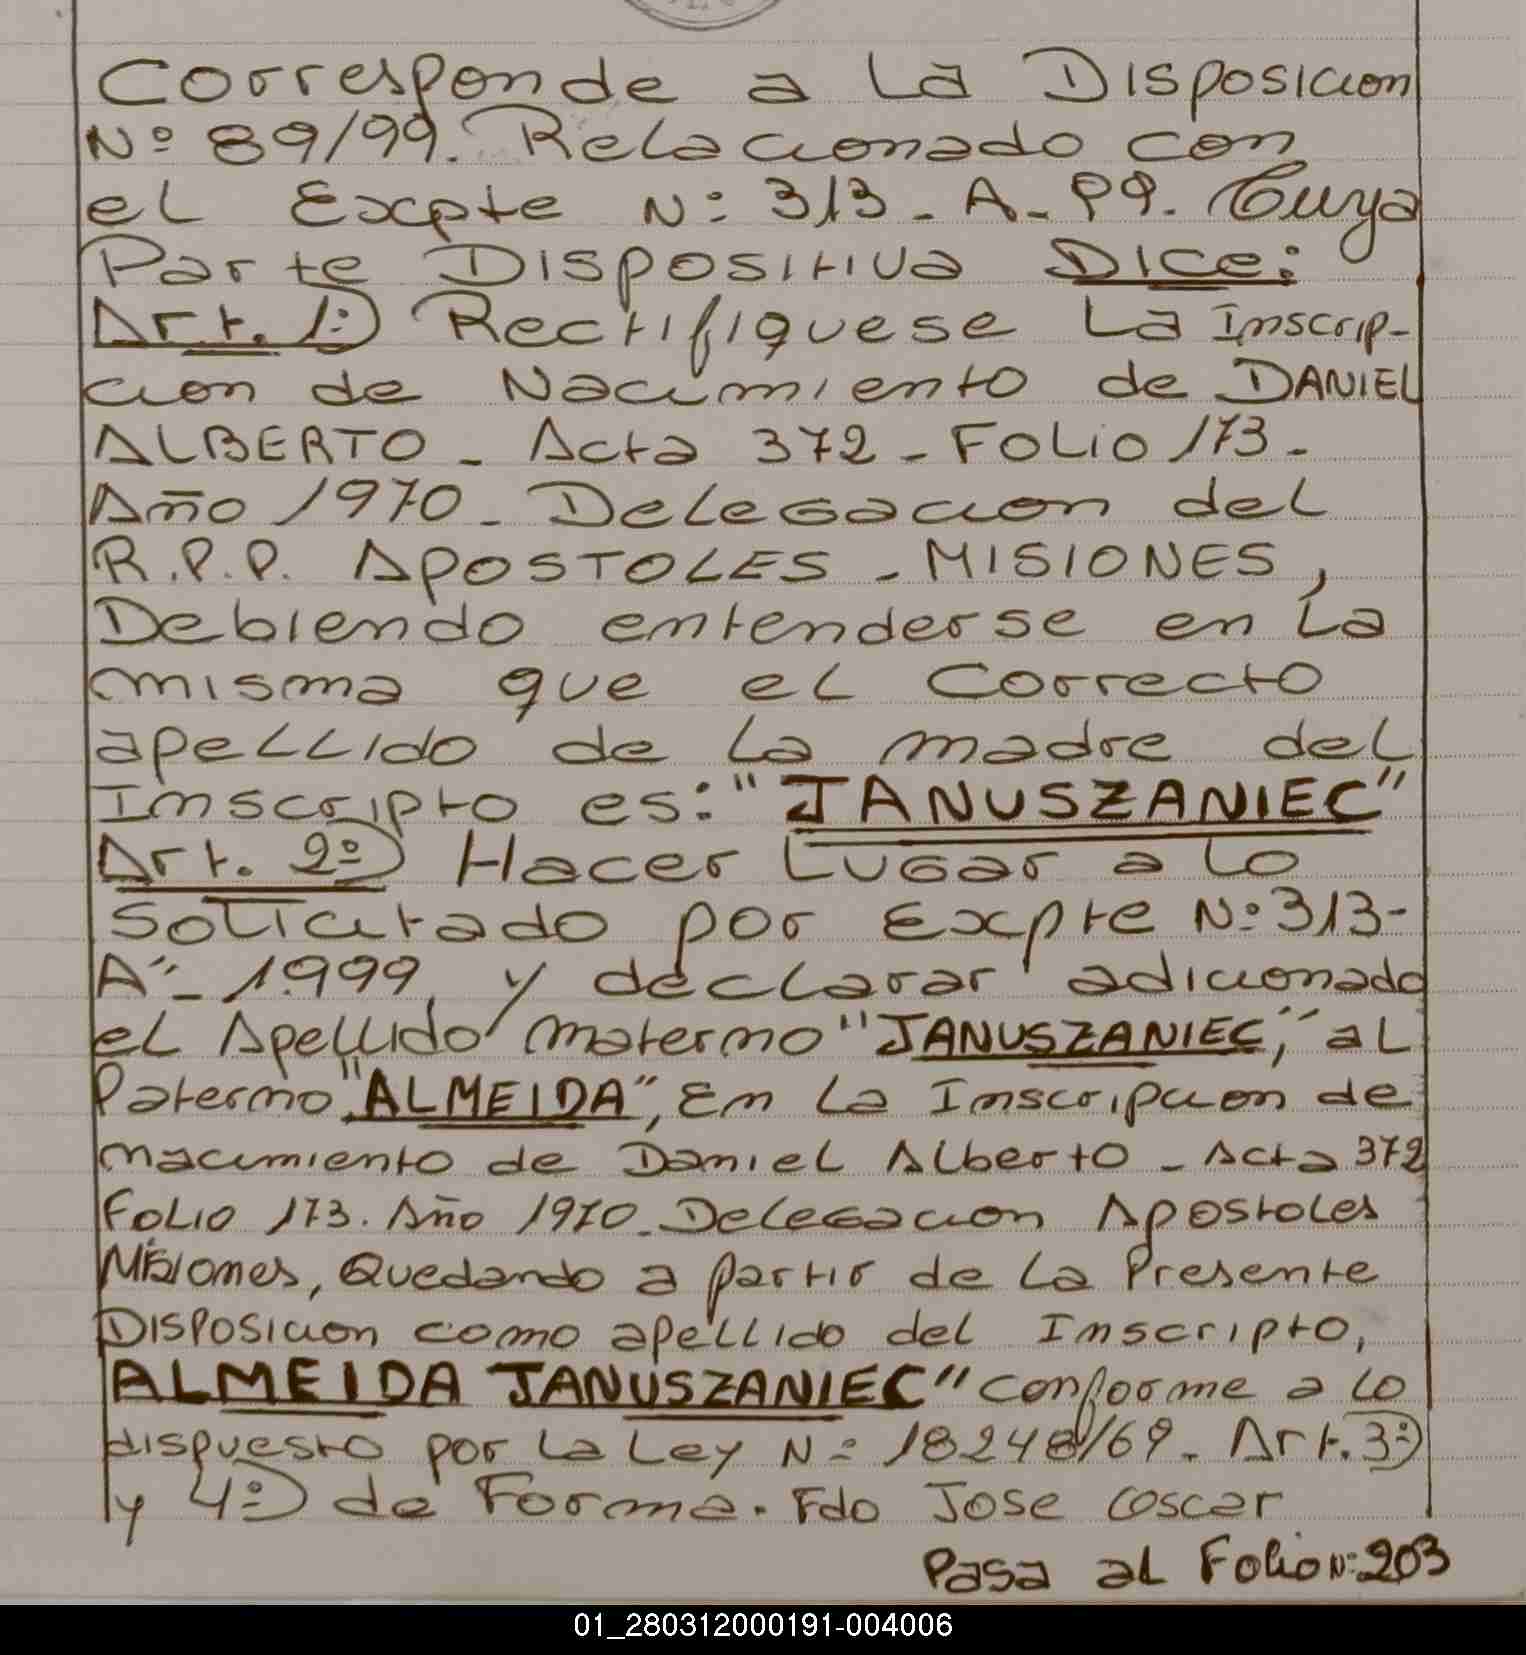 Corresponde a La Disposicion
Nº 89/99. Relacionado con
eL Expte Nº 313 - A - 99. Cuya
Parte Dispositiva Dice:
Art. 1º) Rectifiquese La Inscrip-
cion de Nacimiento de DANIEL
ALBERTO - Acta 372 - Folio 173 -
Año 1970 - Delegacion del
R.P.P. APOSTOLES - MISIONES,
Debiendo entenderse en La
misma que eL Correcto
apeLLido de La madre deL
Inscripto es: "JANUSZANIEC"
Art. 2º) Hacer Lugar a Lo
Solicitado por Expte Nº 313-
A"- 1.999, y decLarar adicionado
eL Apellido materno "JANUSZANIEC," aL
Paterno "ALMEIDA", En La Inscripcion de
nacimiento de DanieL Alberto - Acta 372
FoLio 173. Año 1970 - DeLegacion ApostoLes
Misiones, Quedando a partir de La Presente
Disposicion como apeLLido deL Inscripto,
ALMEIDA JANUSZANIEC" conforme a Lo
dispuesto por La Ley Nº 18248/69. Art. 3º)
y 4º) de Forma. Fdo Jose Oscar
Pasa aL Folio Nº 203
01_280312000191-004006